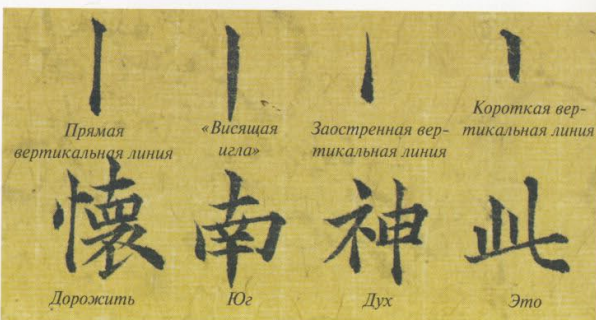 Прямая
вертикальная линия
«Висящая
игла»
Заостренная вер-
тикальная линия
Короткая вер-
тикальная линия
懷 南 神 此
Дорожить Юг Дух Это